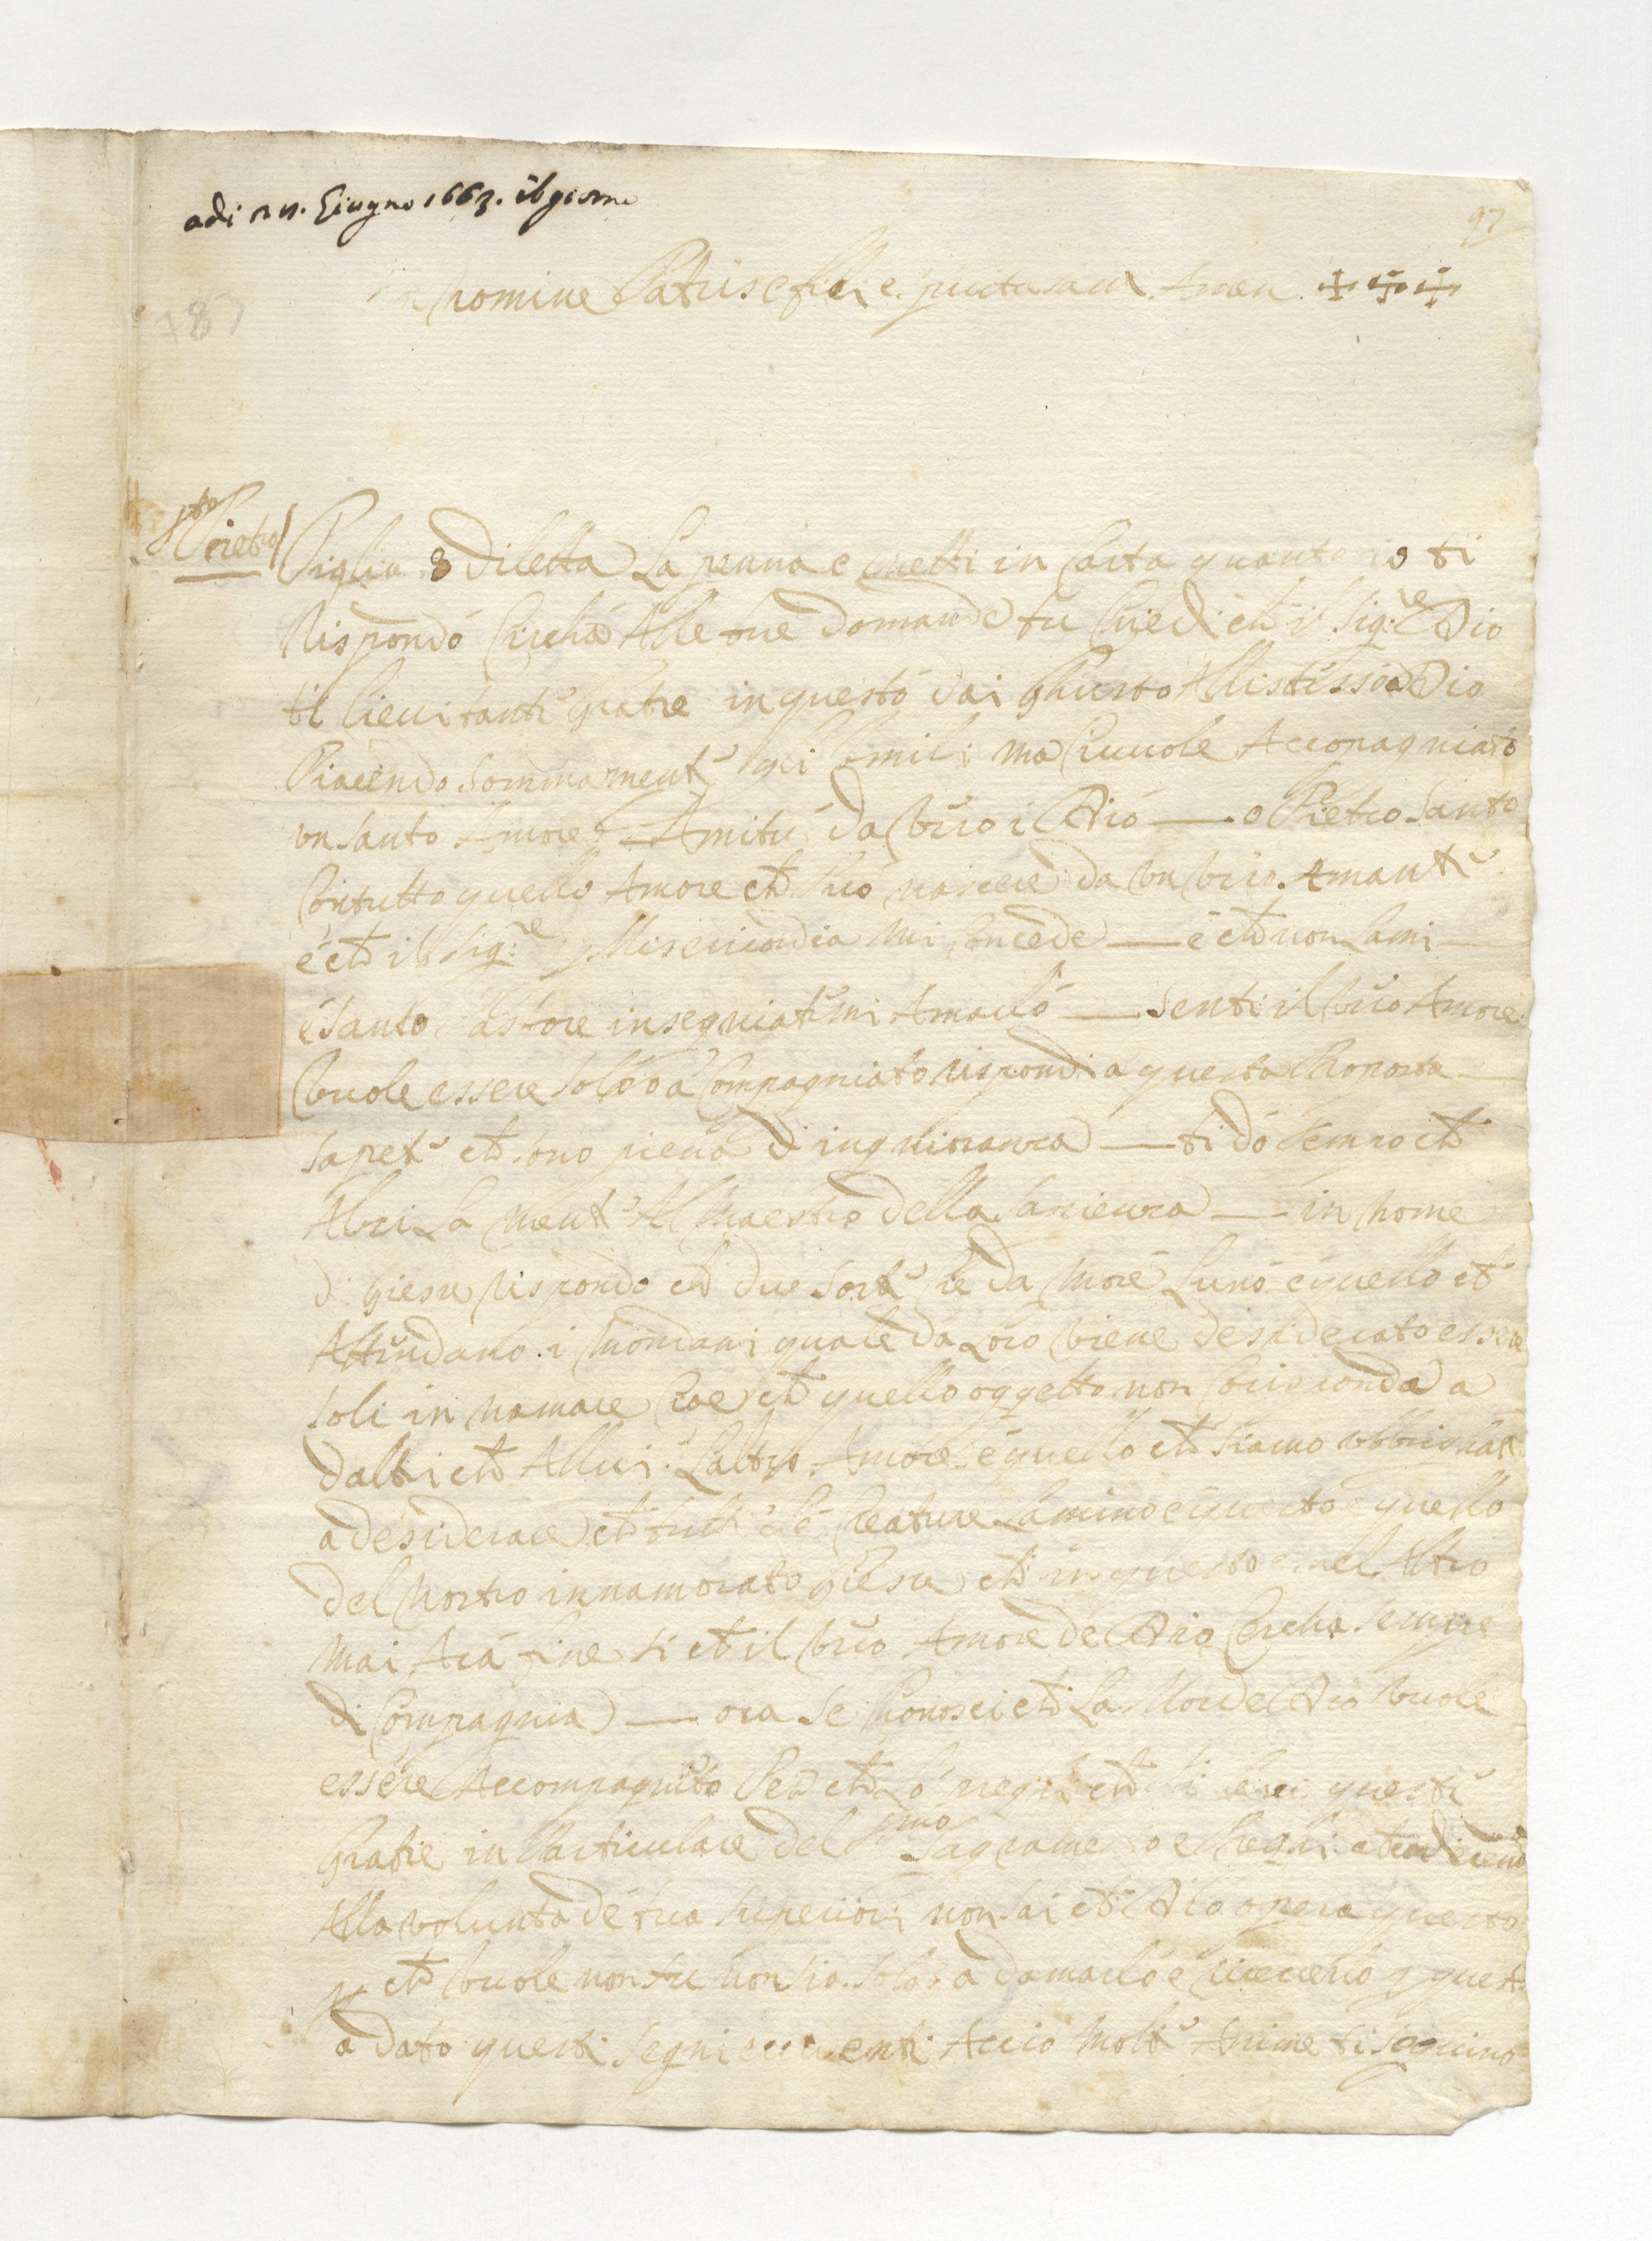 adi 22. Giugno 1663. il giorno
97
nomine Patris e filii e spiritu san. Amen. +++
787
Sto Pietro
Piglia o diletta la penna e metti in Carta quanto io ti
Rispondó Circha Alle tue domande tu Chiedi ch il Sig:re Dio
ti lievi tanti Gratie in questó dai Ghusto Allistesso Dio
Piacendo Sommament gli Umili ma Civuole Accopagniato
un santo Amore Amitu da vero i Dió — o Pietro Santo
Contutto quello Amore ch può nascere da un vero Amant
é ch il Sig:re p Misericordia mi Concede — é ch non lami
é Santo Pastore insegniatimi Amarló — senti il vero Amore
vuole essere soló o a Compagniato rispondi a questa Proposta
sapet ch sono piena d ingnioranza — ti dó tempo ch
Abri la ment Al Maestro della sancienza — in nome
d Giesu Rispondo ch due sort ce da More Lunó é quello ch
Attendano i Mondani quale da Loro viene desiderato essere
soli in namare Cioe ch quello oggetto non Corisconda a
daltri ch Allui. Laltro Amore é quello ch siamo obbrighat
a desiderare ch tutt le Creature lamino é questo quello
del Nostro innamorato Giesu ch in questo nel Altro
mai Ará fine si ch il vero Amore de Dio Cercha sempre
di Compagnia — ora se Chonosci ch La More de Dio vuole
essere Accompagnito Per ch Ló preghi ch ti levi questi
Gratie in Particulare del Smo Sagramento e Preghi
Alla voluntà de tua superiori non sai ch Dio opera questo
p ch vuole non tu non sia sola a damarló e riceverlo p quest
a dato questi segni evidenti Acció Molt Anime ti seguino